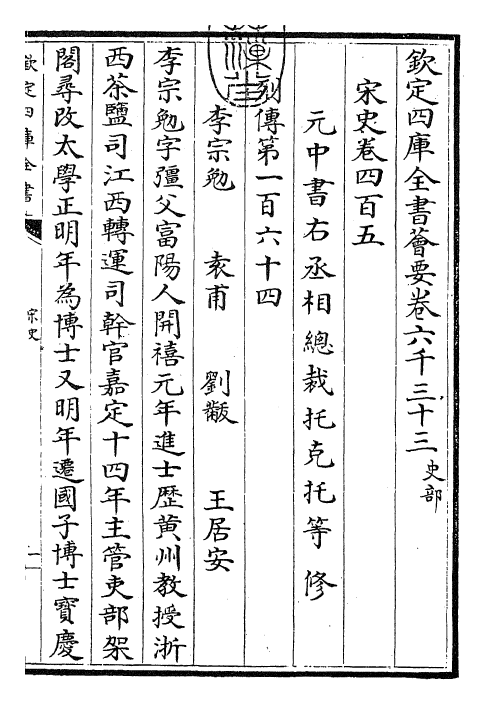 欽定四庫全書薈要卷六千三十三 史部
宋史卷四百五
元中書右丞相總裁托克托等修
列傳第一百六十四
李宗勉 袁甫 劉黻 王居安
李宗勉字彊父富陽人開禧元年進士歷黃州教授浙
西茶鹽司江西轉運司幹官嘉定十四年主管吏部架
閣尋改太學正明年為博士又明年遷國子博士寶慶
欽定四庫全書
宋史
一